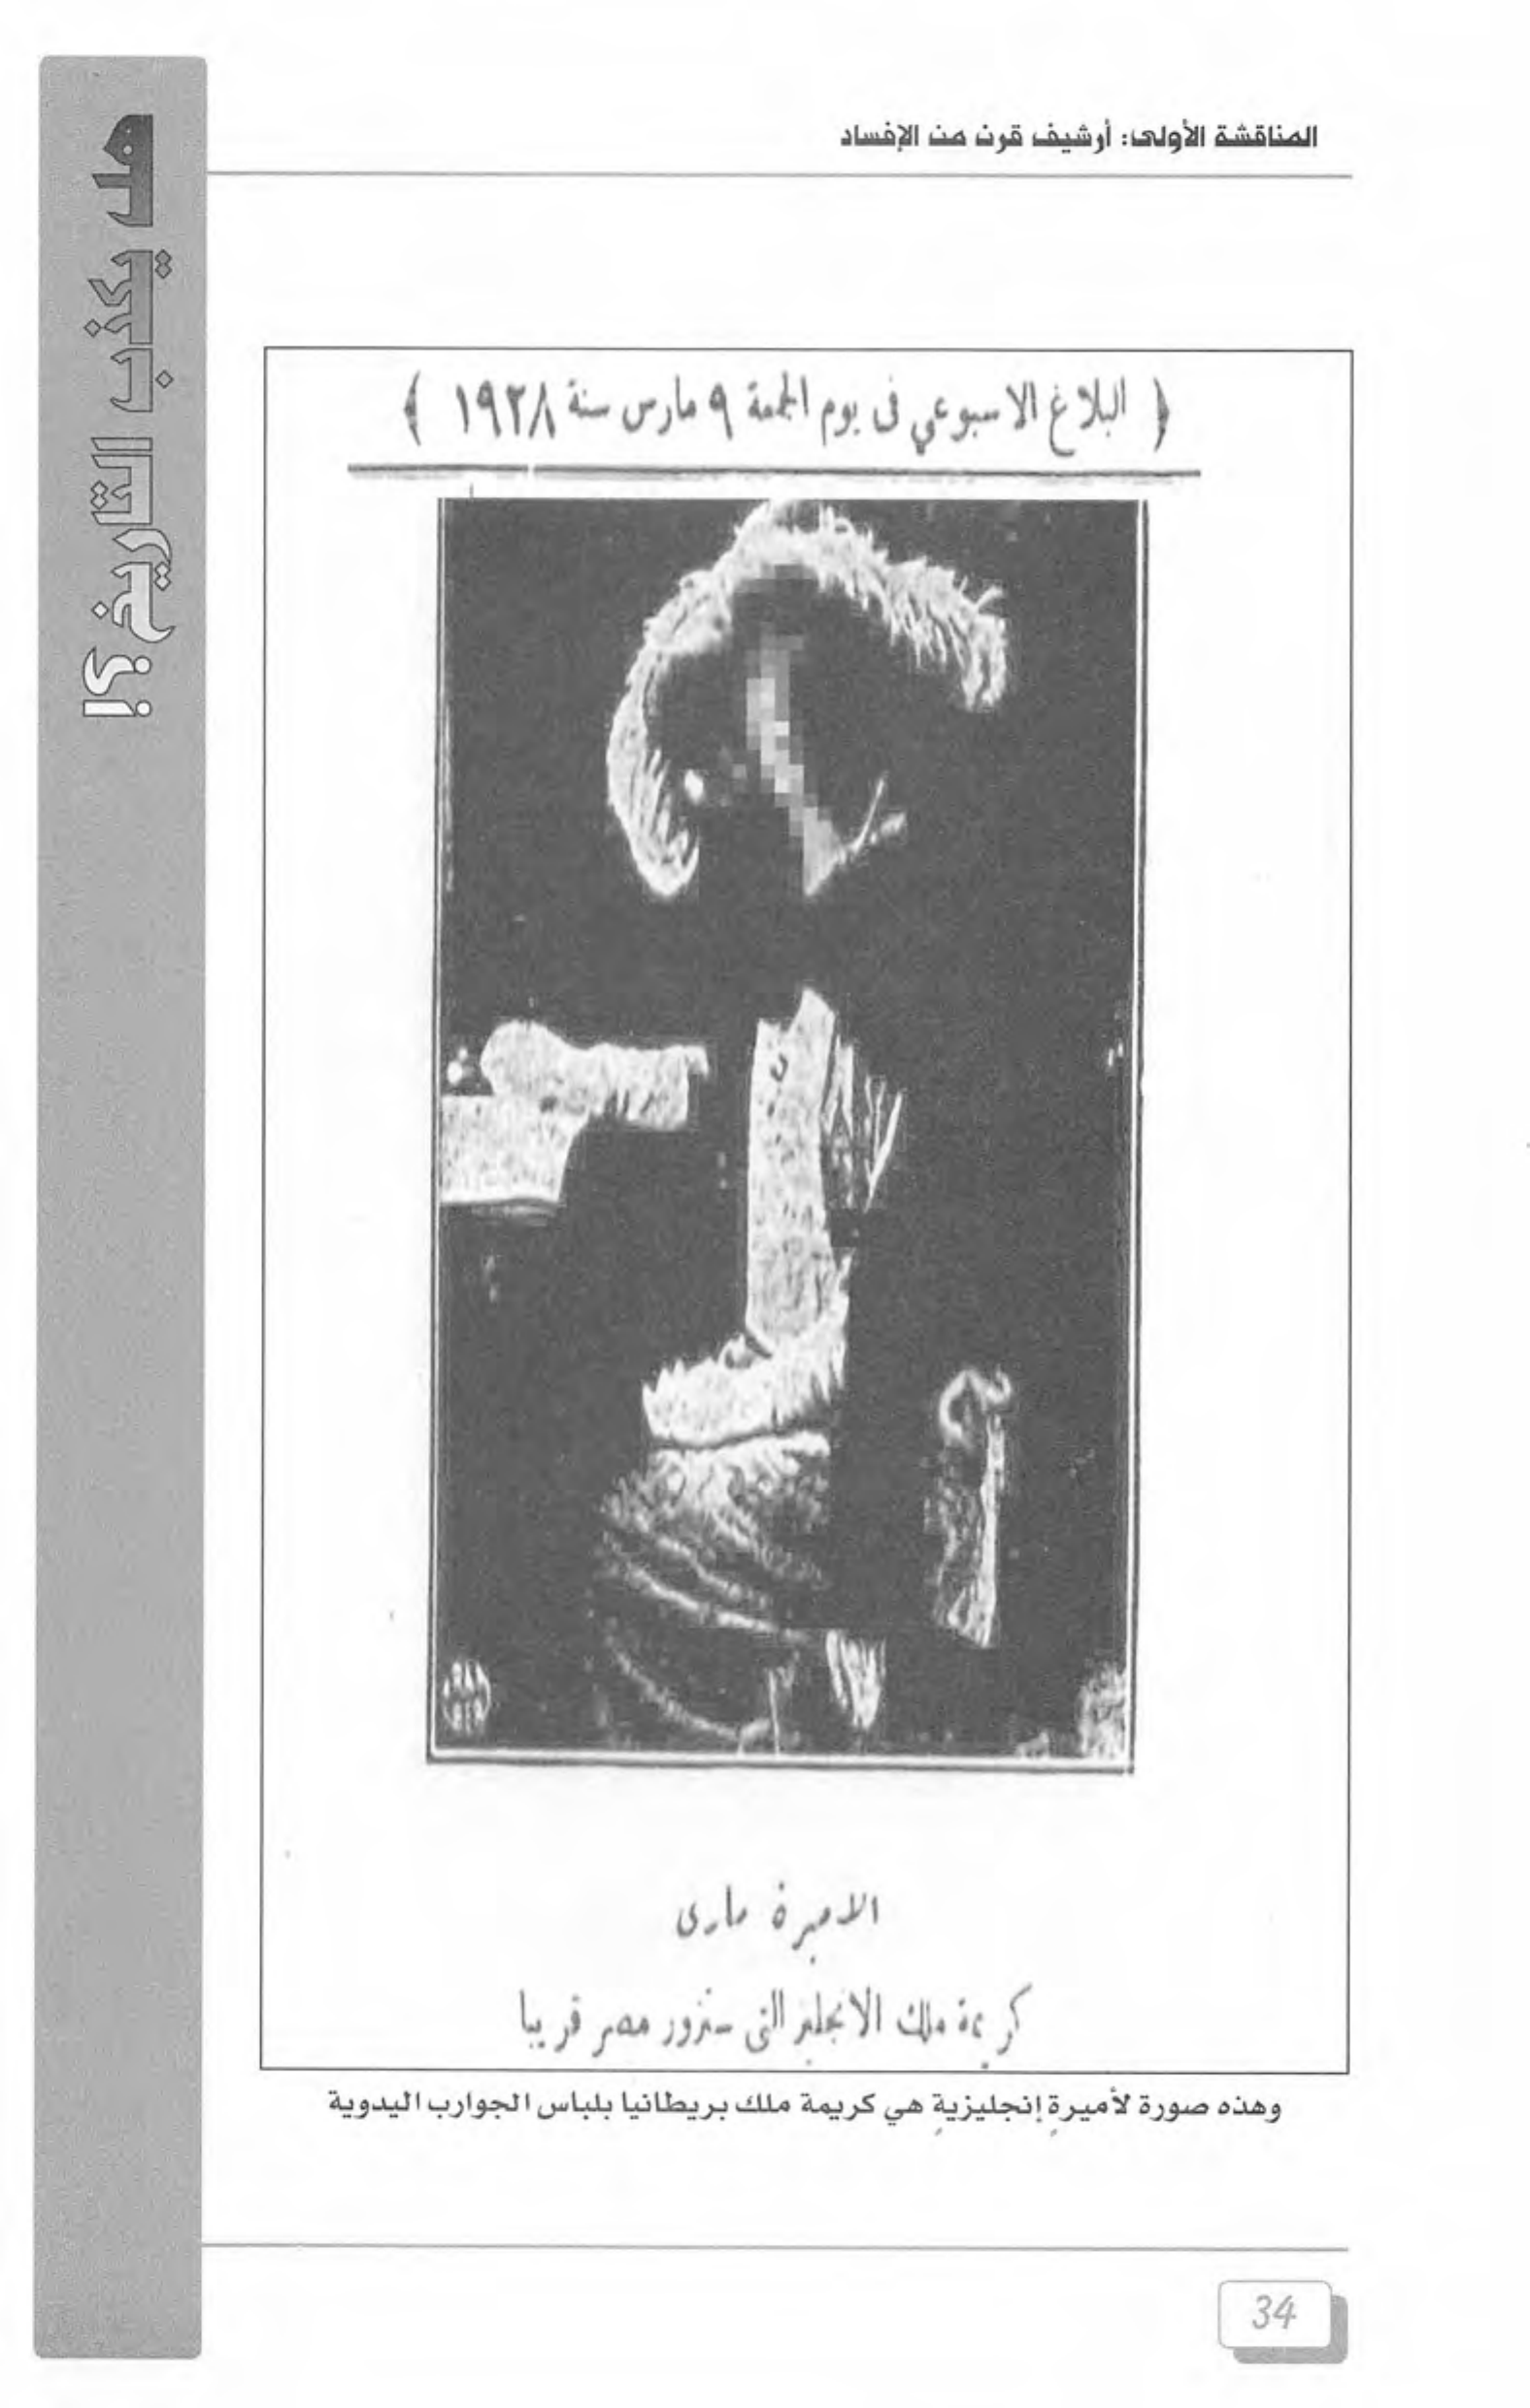 المناقشة الأولى: أرشيف قرن من الإفساد
هل يكذب التاريخ؟!
﴿ البلاغ الاسبوعي فى يوم الجمعة ٩ مارس سنة ١٩٢٨ ﴾
الاميرة مارى
كريمة ملك الانجليز التى ستزور مصر قريبا
وهذه صورة لأميرةٍ إنجليزيةٍ هي كريمة ملك بريطانيا بلباس الجوارب اليدوية
34